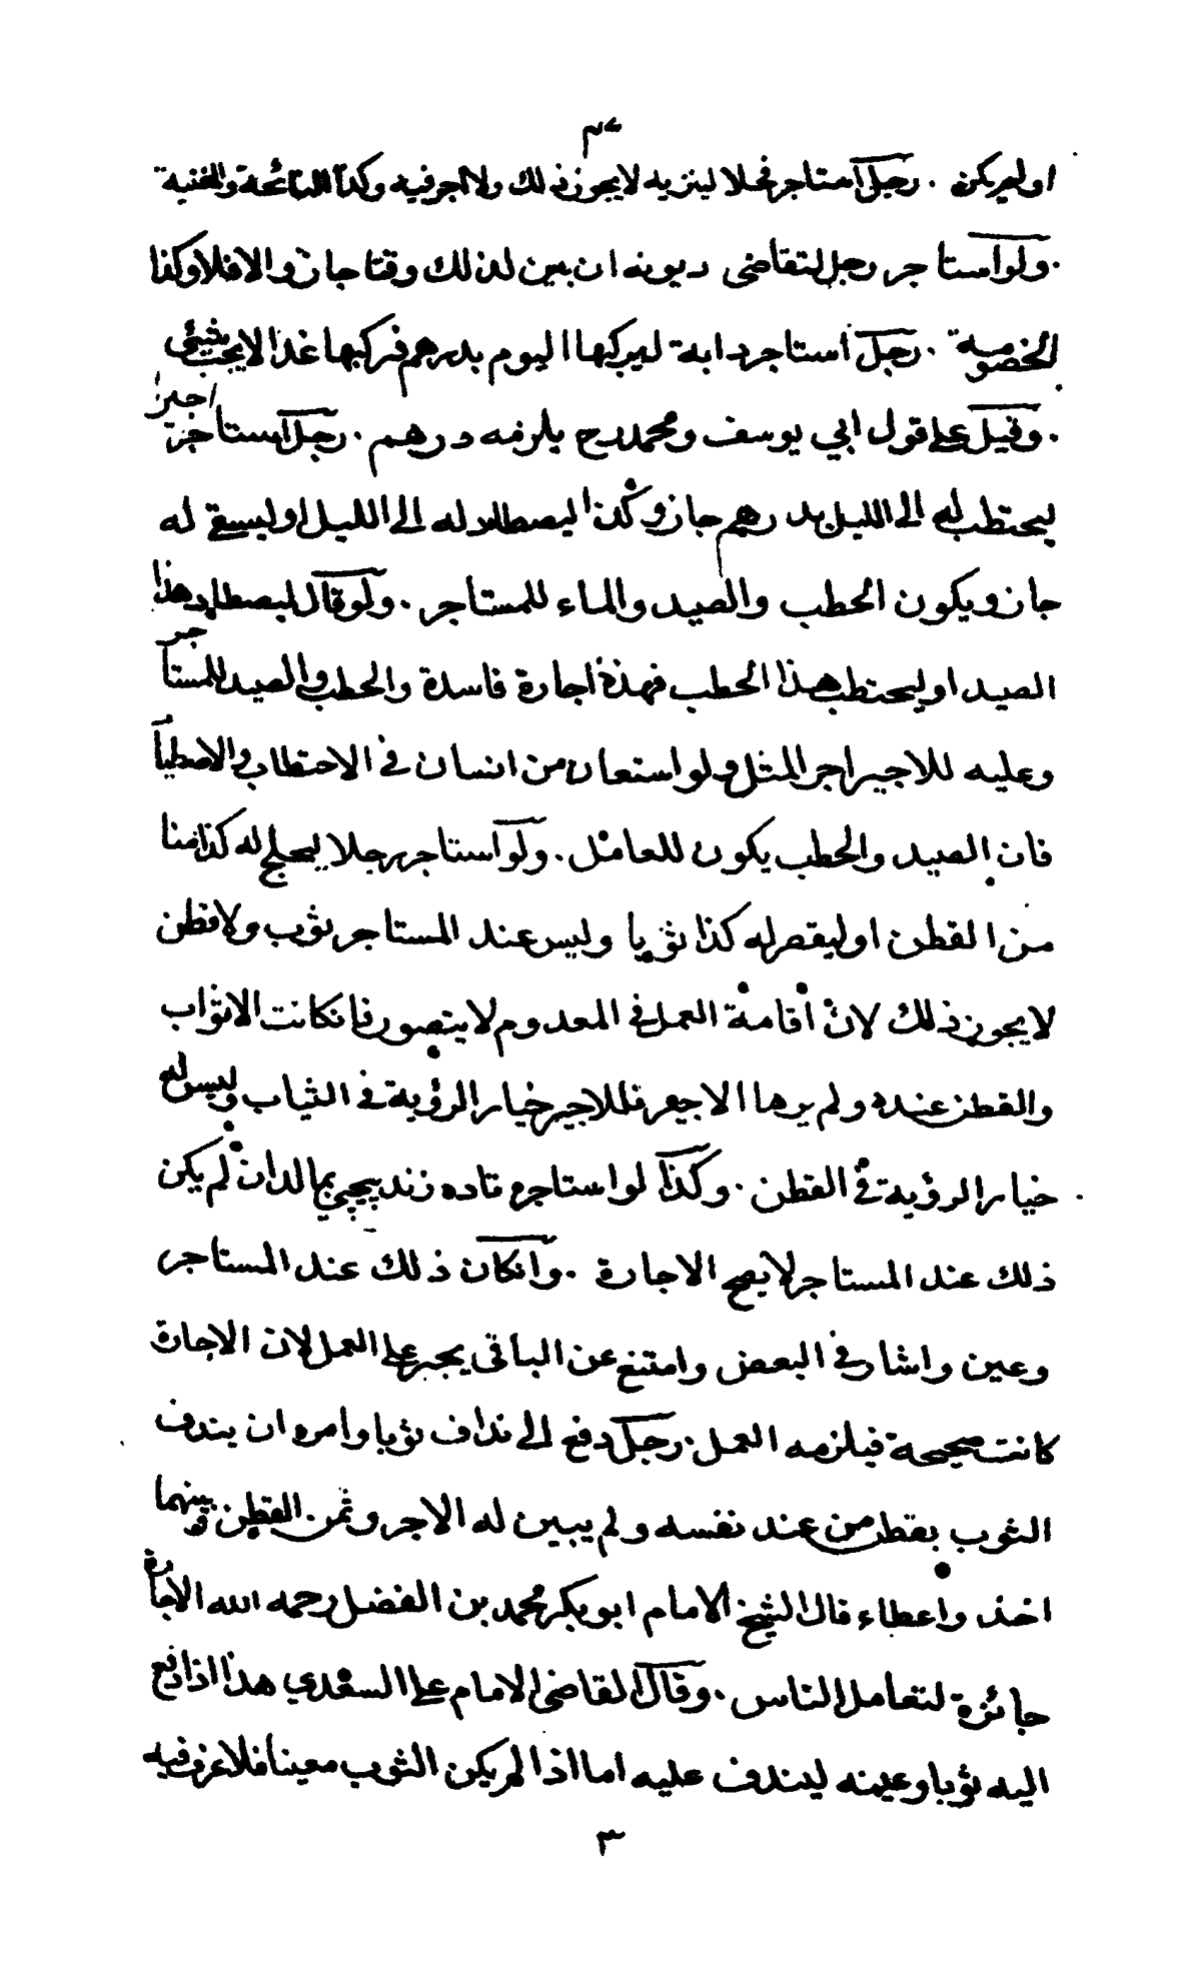 او لم يكن . رجل استاجر فحلا لينزيه لا يجوز ذلك ولا اجر فيه وكذا النائحة والمغنية
. ولو استاجر رجل لتقاضى ديونه ان بين لذلك وقتا جاز والا فلا وكذا
الخصومة . رجل استاجر دابة ليركبها اليوم بدرهم فركبها غدا لا يجب شيئ
. وقيل على قول ابي يوسف ومحمد رح يلزمه درهم . رجل استاجر اجيرا
ليحتطب له الى الليل بدرهم جاز وكذا ليصطاد له الى الليل او ليسقى له
جاز ويكون الحطب والصيد والماء للمستاجر . ولو قال ليصطاد هذا
الصيد او ليحتطب هذا الحطب فهذه اجارة فاسدة والحطب والصيد للمستاجر
وعليه للاجير اجر المثل ولو استعان من انسان في الاحتطاب والاصطياد
فان الصيد والحطب يكون للعامل . ولو استاجر رجلا ليحلج له كذا منا
من القطن او ليقصر له كذا ثوبا وليس عند المستاجر ثوب ولا قطن
لا يجوز ذلك لان اقامة العمل في المعدوم لا يتصور فان كانت الاثواب
والقطن عنده ولم يرها الاجير فللاجير خيار الرؤية في الثياب وليس له
خيار الرؤية في القطن . وكذا لو استاجره تاده زند پيچي بمالد ان لم يكن
ذلك عند المستاجر لا يصح الاجارة . وان كان ذلك عند المستاجر
وعين واشار في البعض وامتنع عن الباقى يجبر على العمل لان الاجارة
كانت صحيحة فيلزمه العمل . رجل دفع الى نداف ثوبا وامره ان يندف
الثوب بقطن من عند نفسه ولم يبين له الاجر وثمن القطن وبينهما
اخذ واعطاء قال الشيخ الامام ابو بكر محمد بن الفضل رحمه الله الاجارة
جائزة لتعامل الناس . وقال القاضى الامام على السغدي هذا اذا دفع
اليه ثوبا وعينه ليندف عليه اما اذا لم يكن الثوب معينا فلا عرف فيه
٣